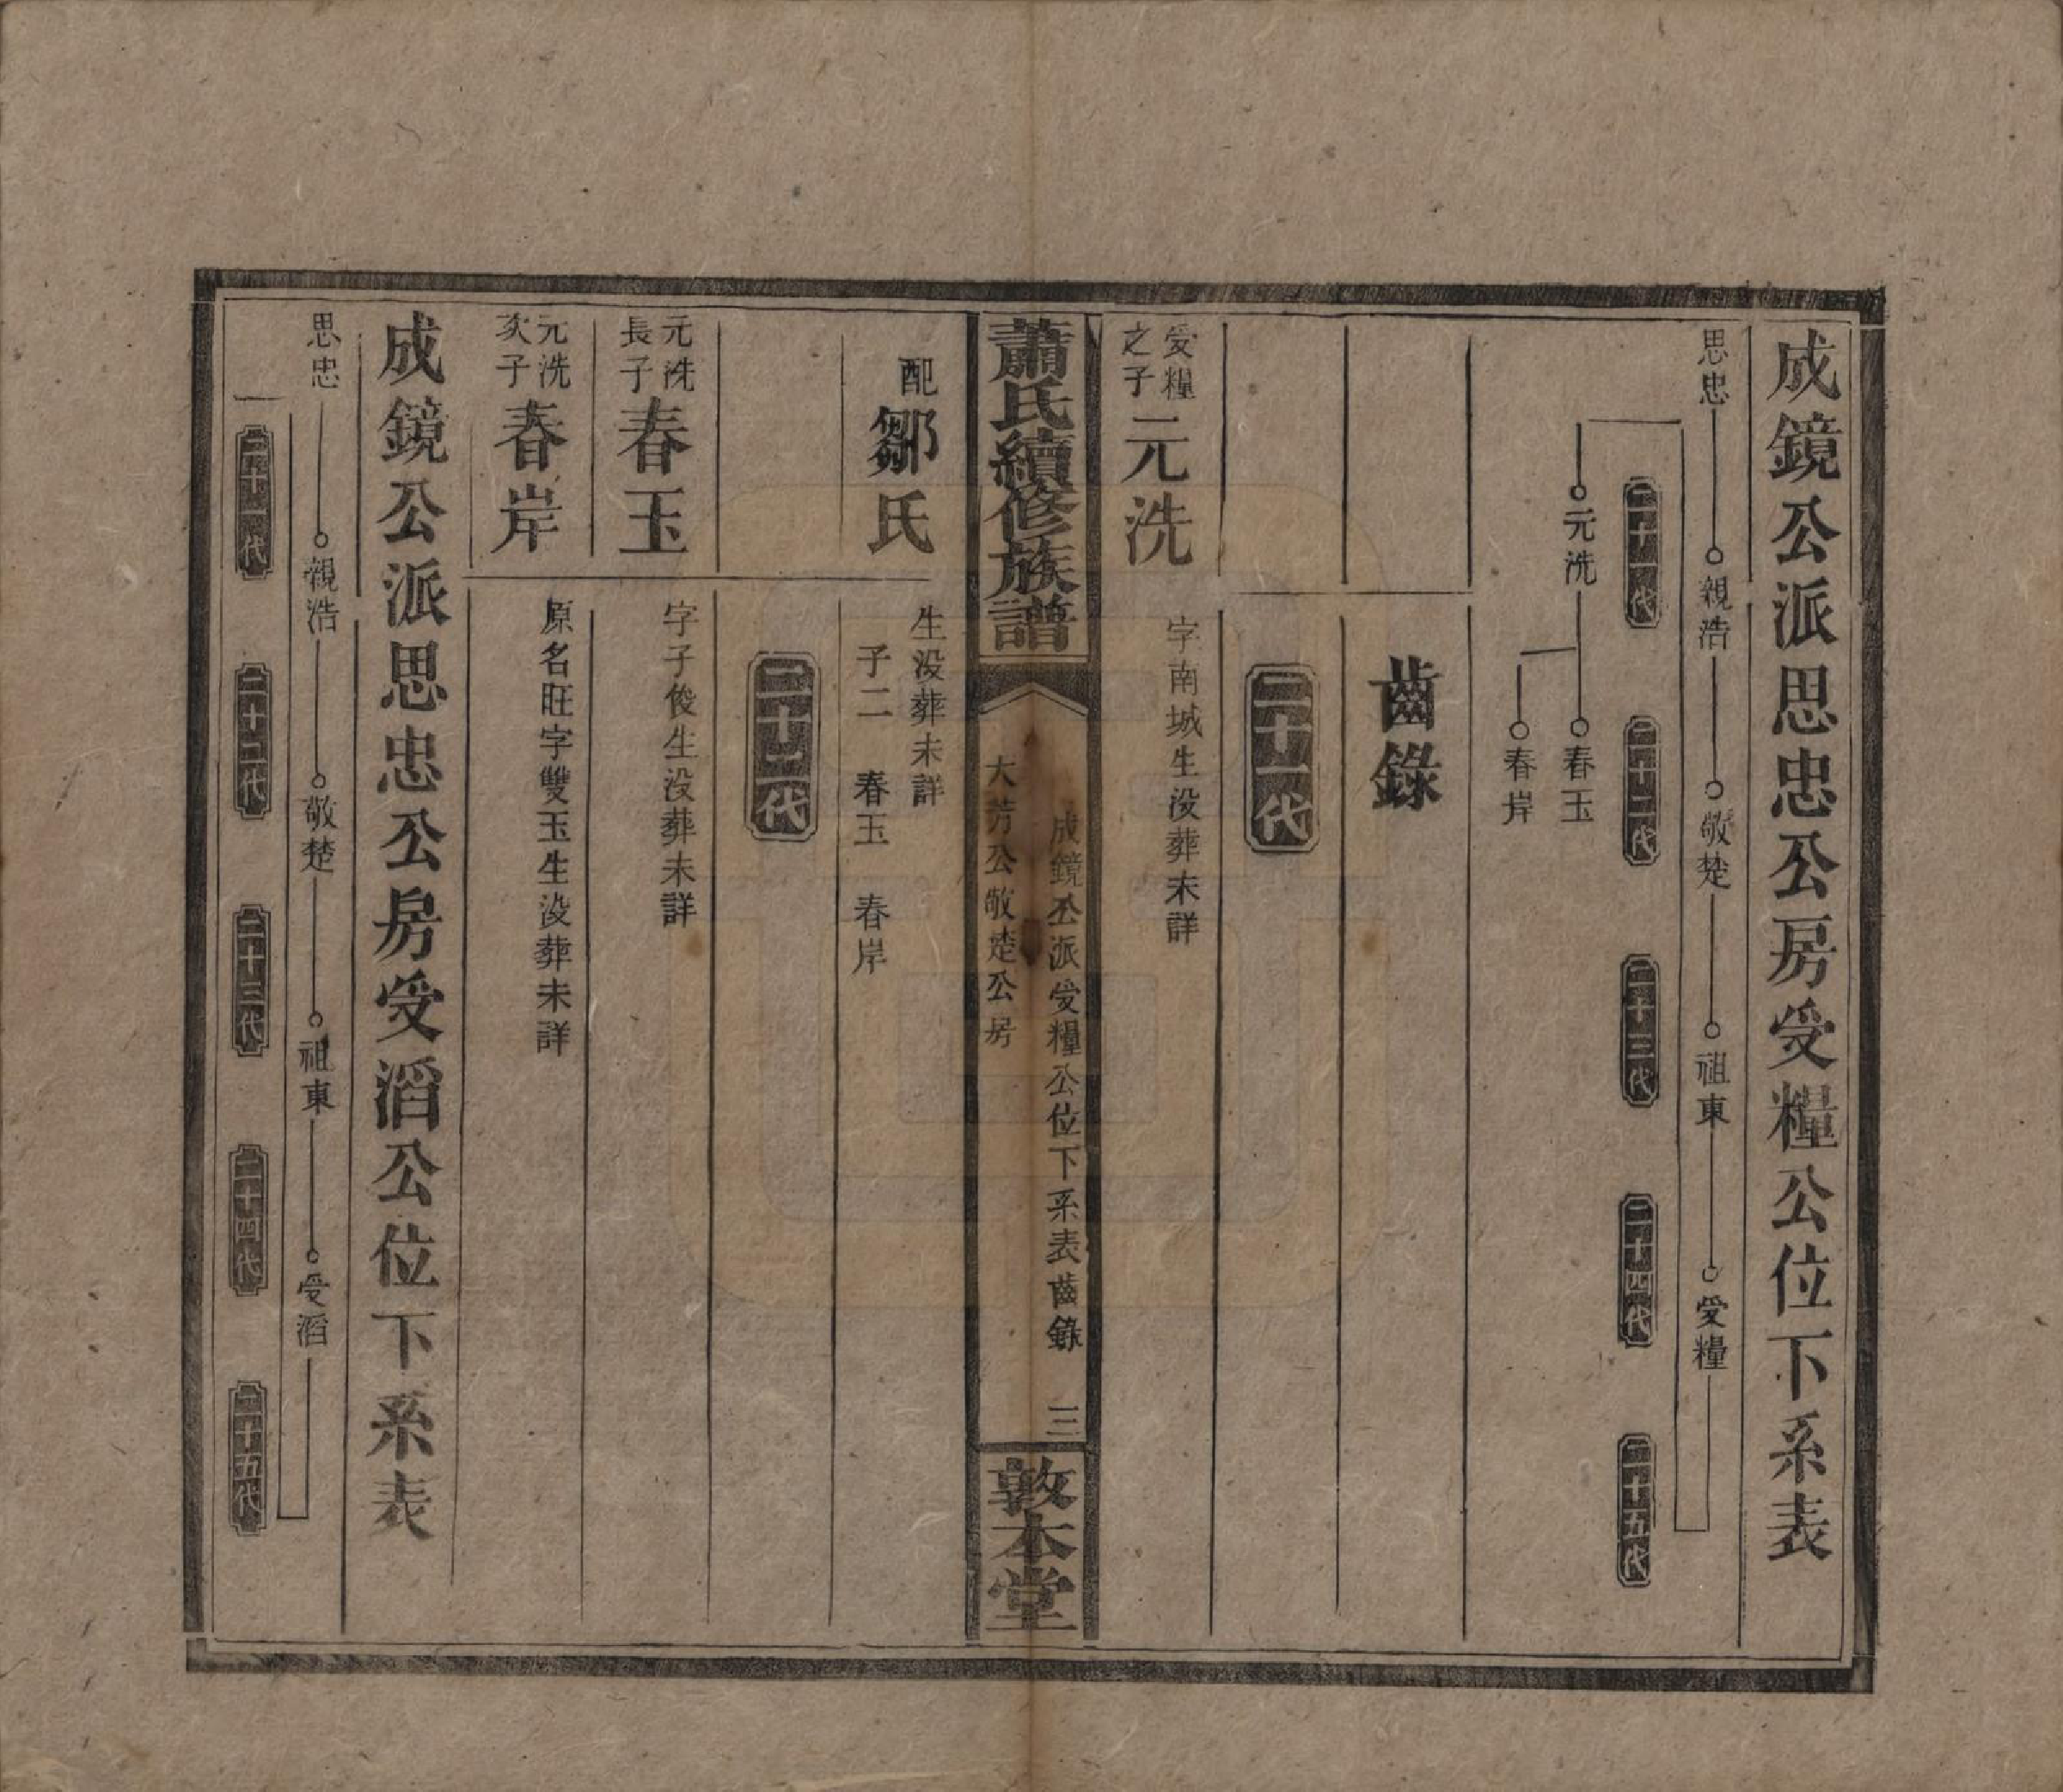 成鏡公派思忠公房受糧公位下系表
思忠 親浩 敬楚 祖東 受糧
二十一代 二十二代 二十三代 二十四代 二十五代
元洗 春玉
春岸
齒錄
二十一代
受糧之子 元洗 字南城生没葬未詳
蕭氏續修族譜 成鏡公派受糧公位下系表齒錄 三
大芳公敬楚公房
敦本堂
配鄒氏 生没葬未詳
子二 春玉 春岸
二十二代
元洗長子 春玉 字子俊生没葬未詳
元洗次子 春岸 原名旺字雙玉生没葬未詳
成鏡公派思忠公房受滔公位下系表
思忠 親浩 敬楚 祖東 受滔
二十一代 二十二代 二十三代 二十四代 二十五代